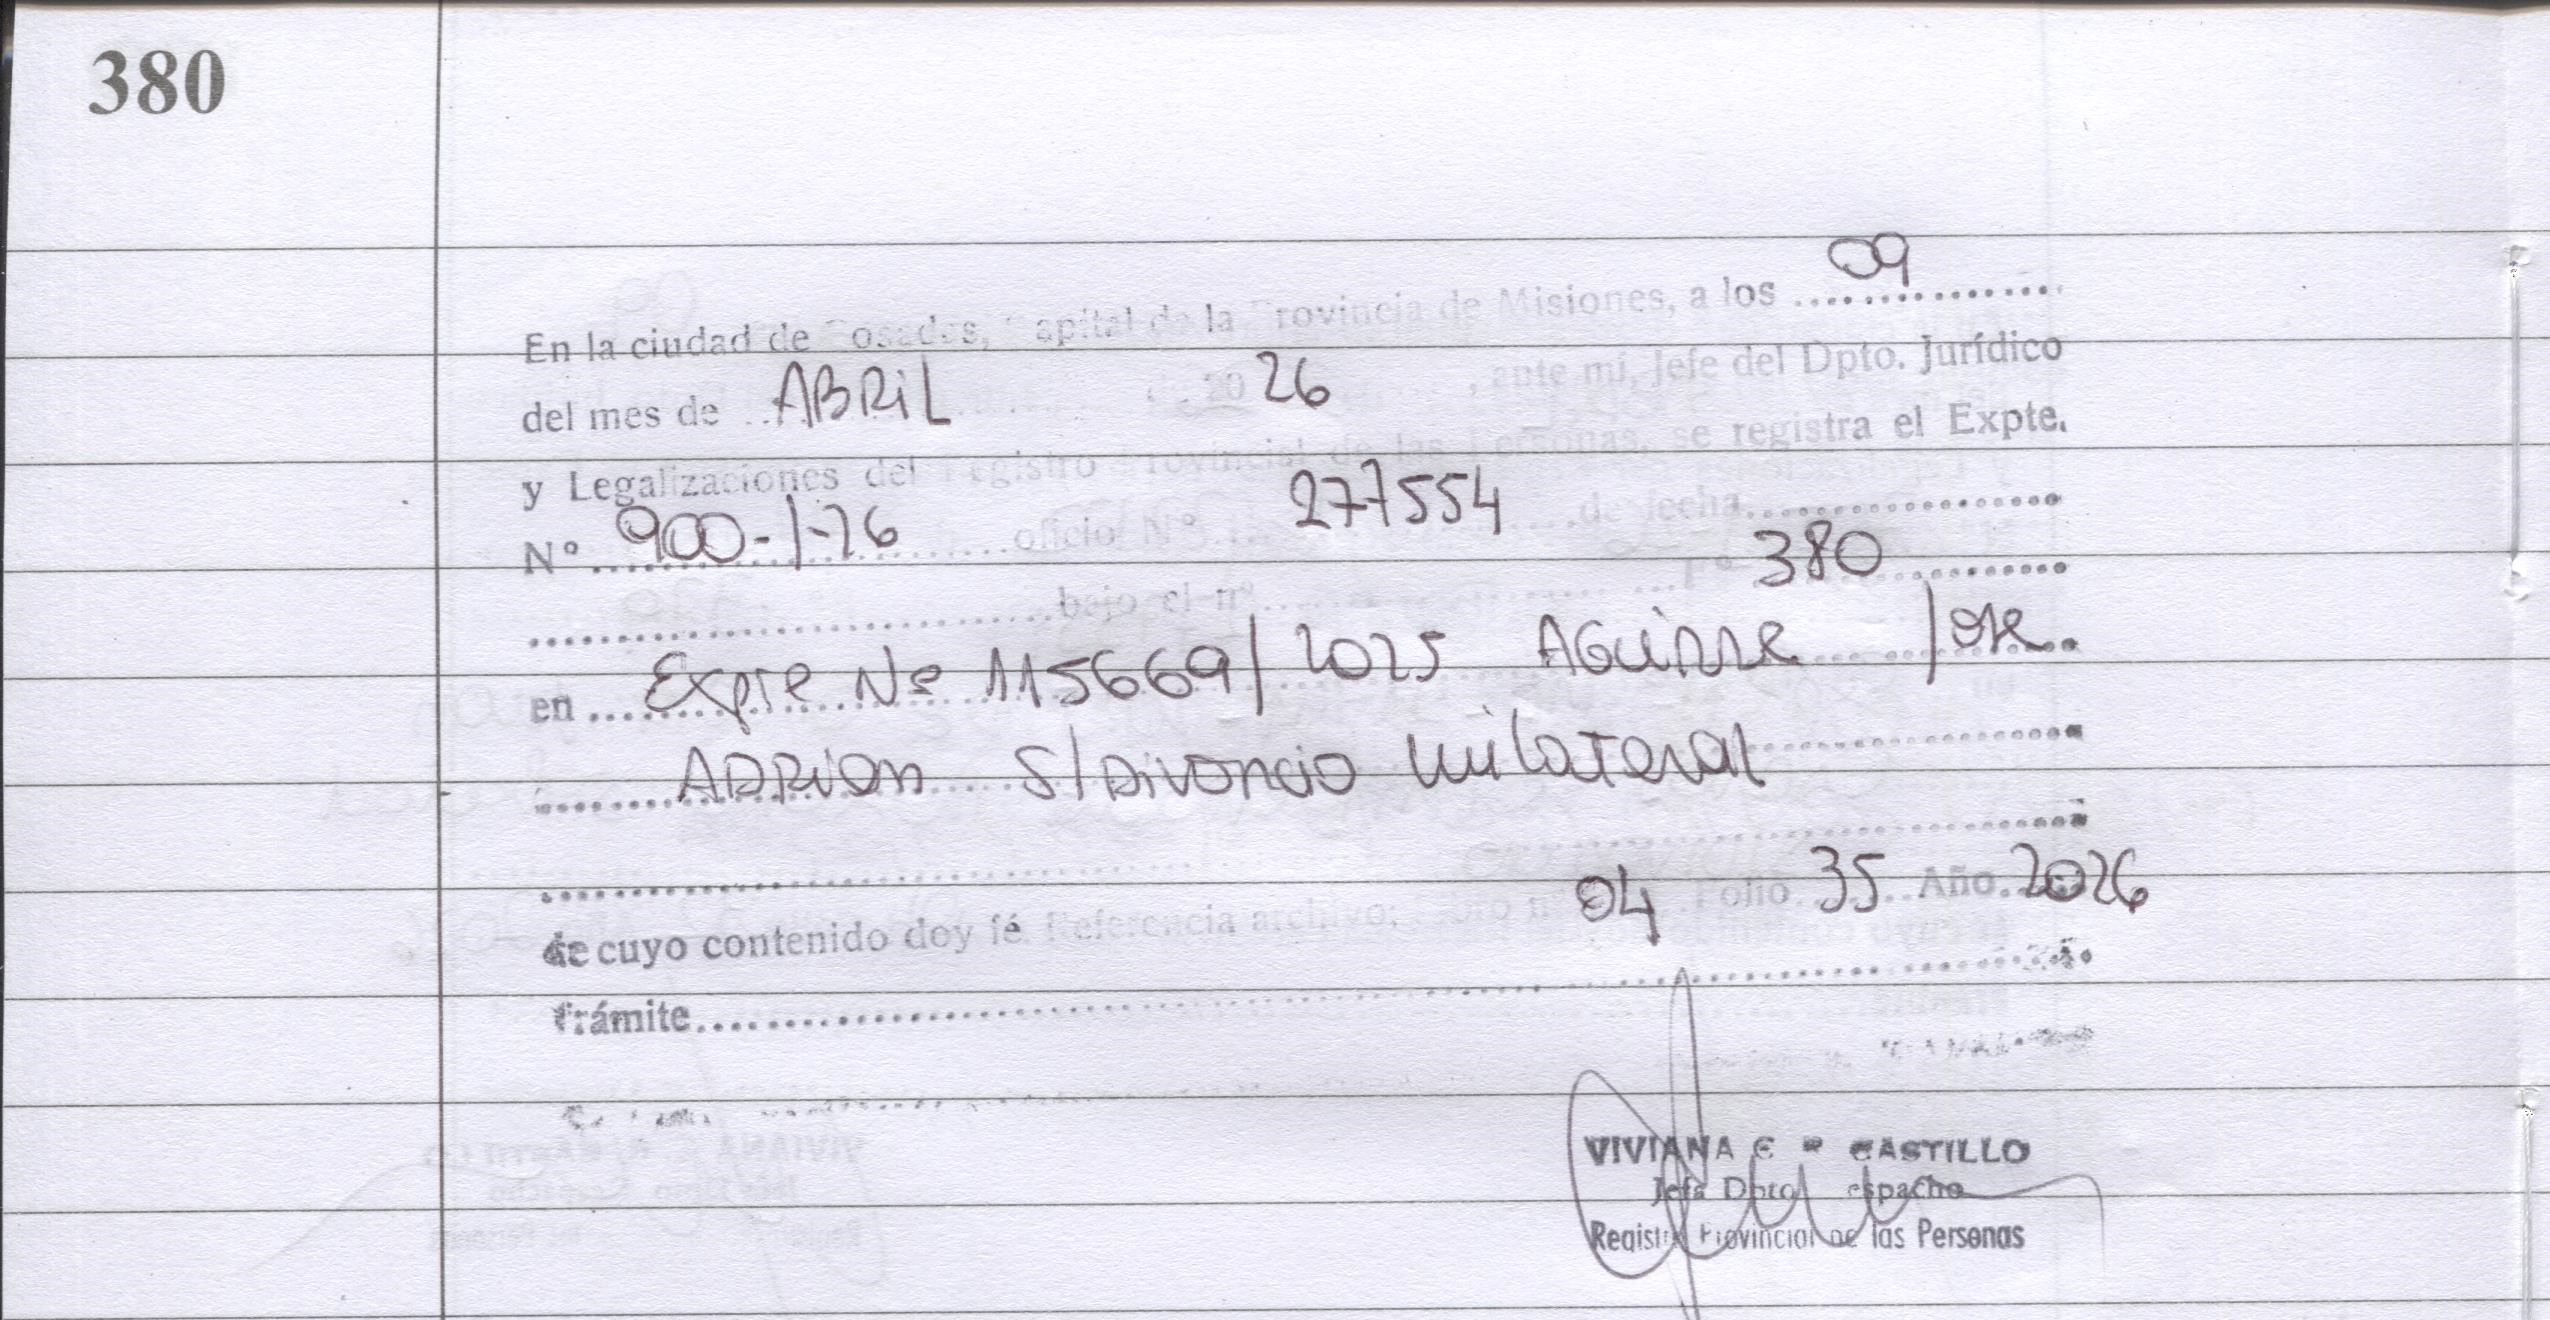 380
En la ciudad de Posadas, Capital de la Provincia de Misiones, a los 09
del mes de ABRiL de 20 26, ante mí, Jefe del Dpto. Jurídico
y Legalizaciones del Registro Provincial de las Personas, se registra el Expte.
Nº 900-1-26 oficio Nº 277554 de fecha
bajo el nº Fº 380
en Expte Nº 115669/2025 AGuirre Jose
ADRian S/Divorcio unilateral
de cuyo contenido doy fé. Referencia archivo: Libro nº 04 Folio 35 Año 2026
Trámite
VIVIANA E CASTILLO
Jefa Dpto Despacho
Registro Provincial de las Personas